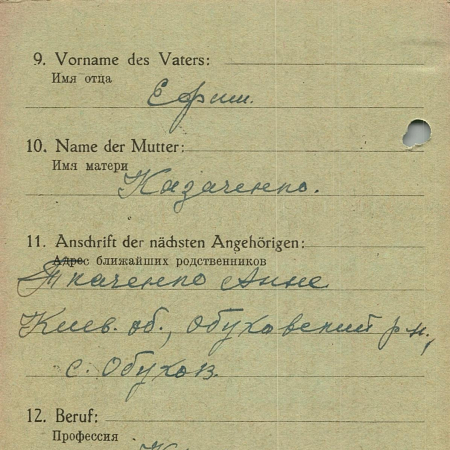 9. Vorname des Vaters:
Имя отца
Ефим.
10. Name der Mutter:
Имя матери
Казаченко.
11. Anschrift der nächsten Angehörigen:
Адрес ближайших родственников
Ткаченко Анне
Киев. об., Обуховский р-н,
с. Обухов.
12. Beruf:
Профессия